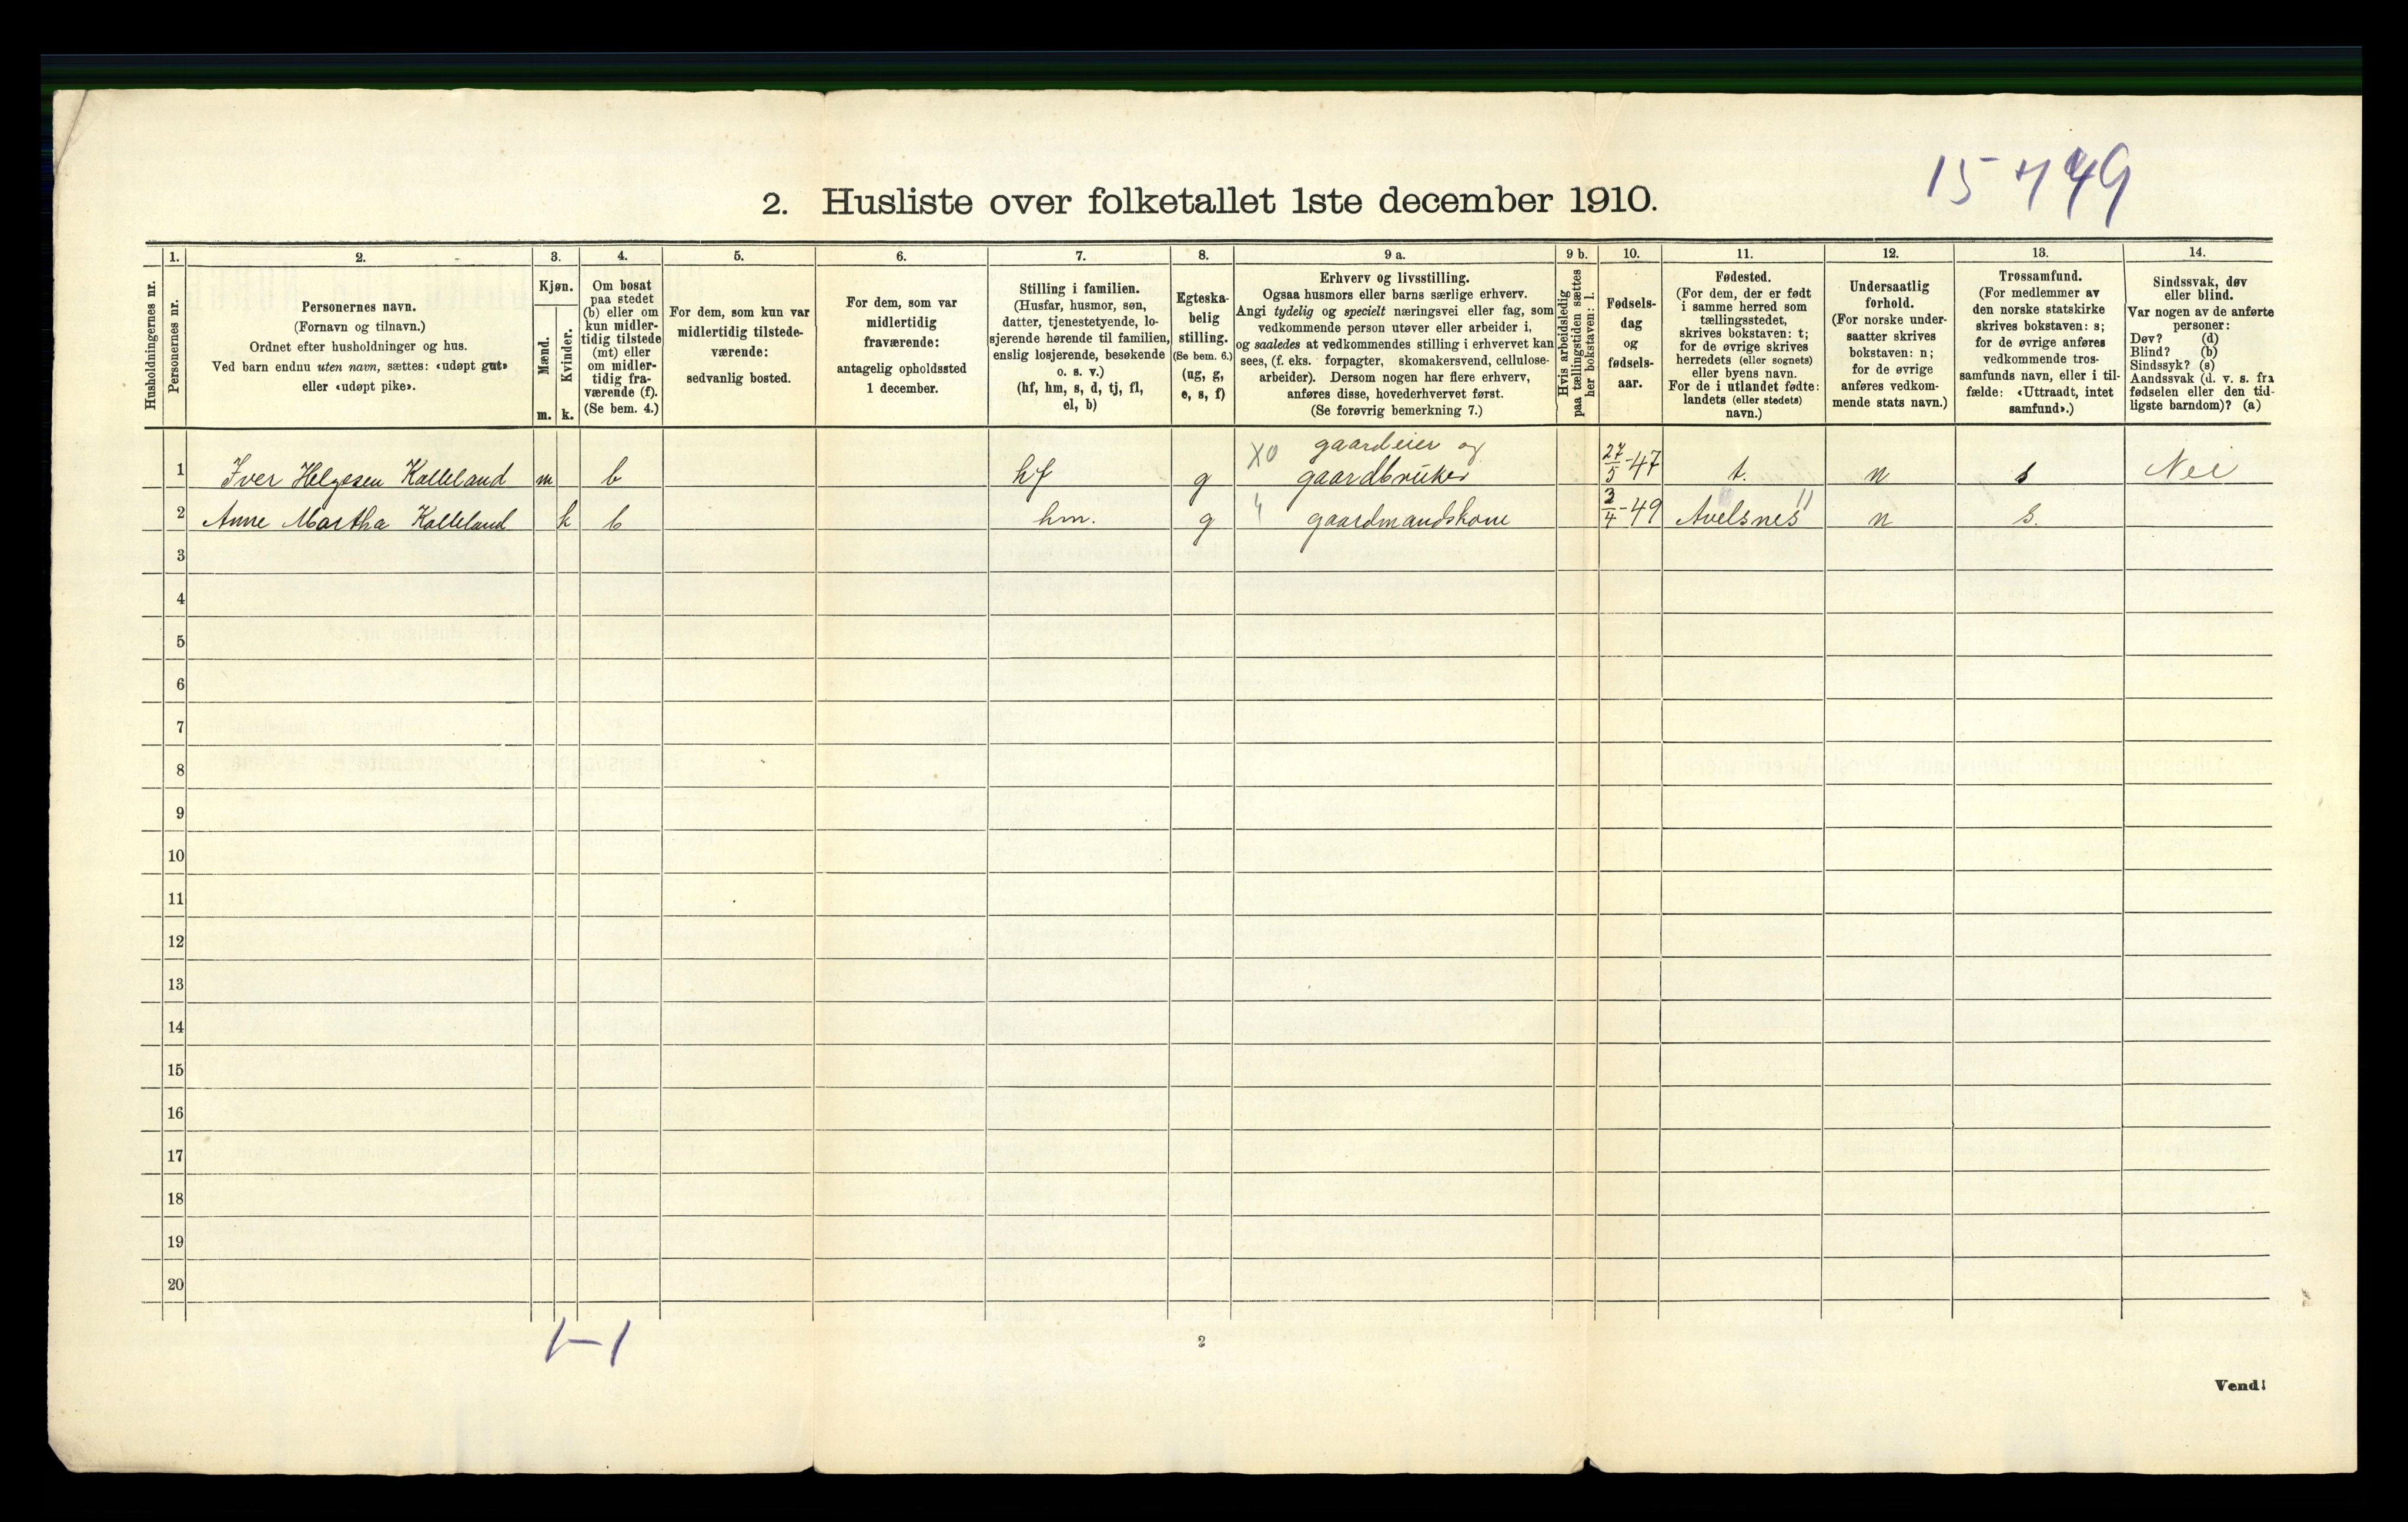 15
2. Husliste over folketallet 1ste december 1910.
Husholdningernes nr.
1.
Personernes nr.
2.
Personernes navn.
(Fornavn og tilnavn.)
Ordnet efter husholdninger og hus.
Ved barn endnu uten navn, sættes: «udøpt gut»
eller «udøpt pike».
3.
Kjøn.
Mænd.
Kvinder.
m. k.
4.
Om bosat
paa stedet
(b) eller om
kun midler-
tidig tilstede
(mt) eller
om midler-
tidig fra-
værende (f).
(Se bem. 4.)
5.
For dem, som kun var
midlertidig tilstede-
værende:
sedvanlig bosted.
6.
For dem, som var
midlertidig
fraværende:
antagelig opholdssted
1 december.
7.
Stilling i familien.
(Husfar, husmor, søn,
datter, tjenestetyende, lo-
sjerende hørende til familien,
enslig losjerende, besøkende
o. s. v.)
(hf, hm, s, d, tj, fl,
el, b)
8.
Egteska-
belig
stilling.
(Se bem. 6.)
(ug, g,
e, s, f)
9 a.
Erhverv og livsstilling.
Ogsaa husmors eller barns særlige erhverv.
Angi tydelig og specielt næringsvei eller fag, som
vedkommende person utøver eller arbeider i,
og saaledes at vedkommendes stilling i erhvervet kan
sees, (f. eks. forpagter, skomakersvend, cellulose-
arbeider). Dersom nogen har flere erhverv,
anføres disse, hovederhvervet først.
(Se forøvrig bemerkning 7.)
9 b.
Hvis arbeidsledig
paa tællingstiden sættes
her bokstaven: l.
10.
Fødsels-
dag
og
fødsels-
aar.
11.
Fødested.
(For dem, der er født
i samme herred som
tællingsstedet,
skrives bokstaven: t;
for de øvrige skrives
herredets (eller sognets)
eller byens navn.
For de i utlandet fødte:
landets (eller stedets)
navn.)
12.
Undersaatlig
forhold.
(For norske under-
saatter skrives
bokstaven: n;
for de øvrige
anføres vedkom-
mende stats navn.)
13.
Trossamfund.
(For medlemmer av
den norske statskirke
skrives bokstaven: s;
for de øvrige anføres
vedkommende tros-
samfunds navn, eller i til-
fælde: «Uttraadt, intet
samfund».)
14.
Sindssvak, døv
eller blind.
Var nogen av de anførte
personer:
Døv? (d)
Blind? (b)
Sindssyk? (s)
Aandssvak (d. v. s. fra
fødselen eller den tid-
ligste barndom)? (a)
XO gaardeier og
1 Iver Helgesen Kalleland m b hf g gaardbruker 27/5-47 t. n s Nei
2 Anne Martha Kalleland k b hm. g gaardmandskone 3/4-49 Avelsnes 11 n s.
3
4
5
6
7
8
9
10
11
12
13
14
15
16
17
18
19
20
1-1
2
Vend!